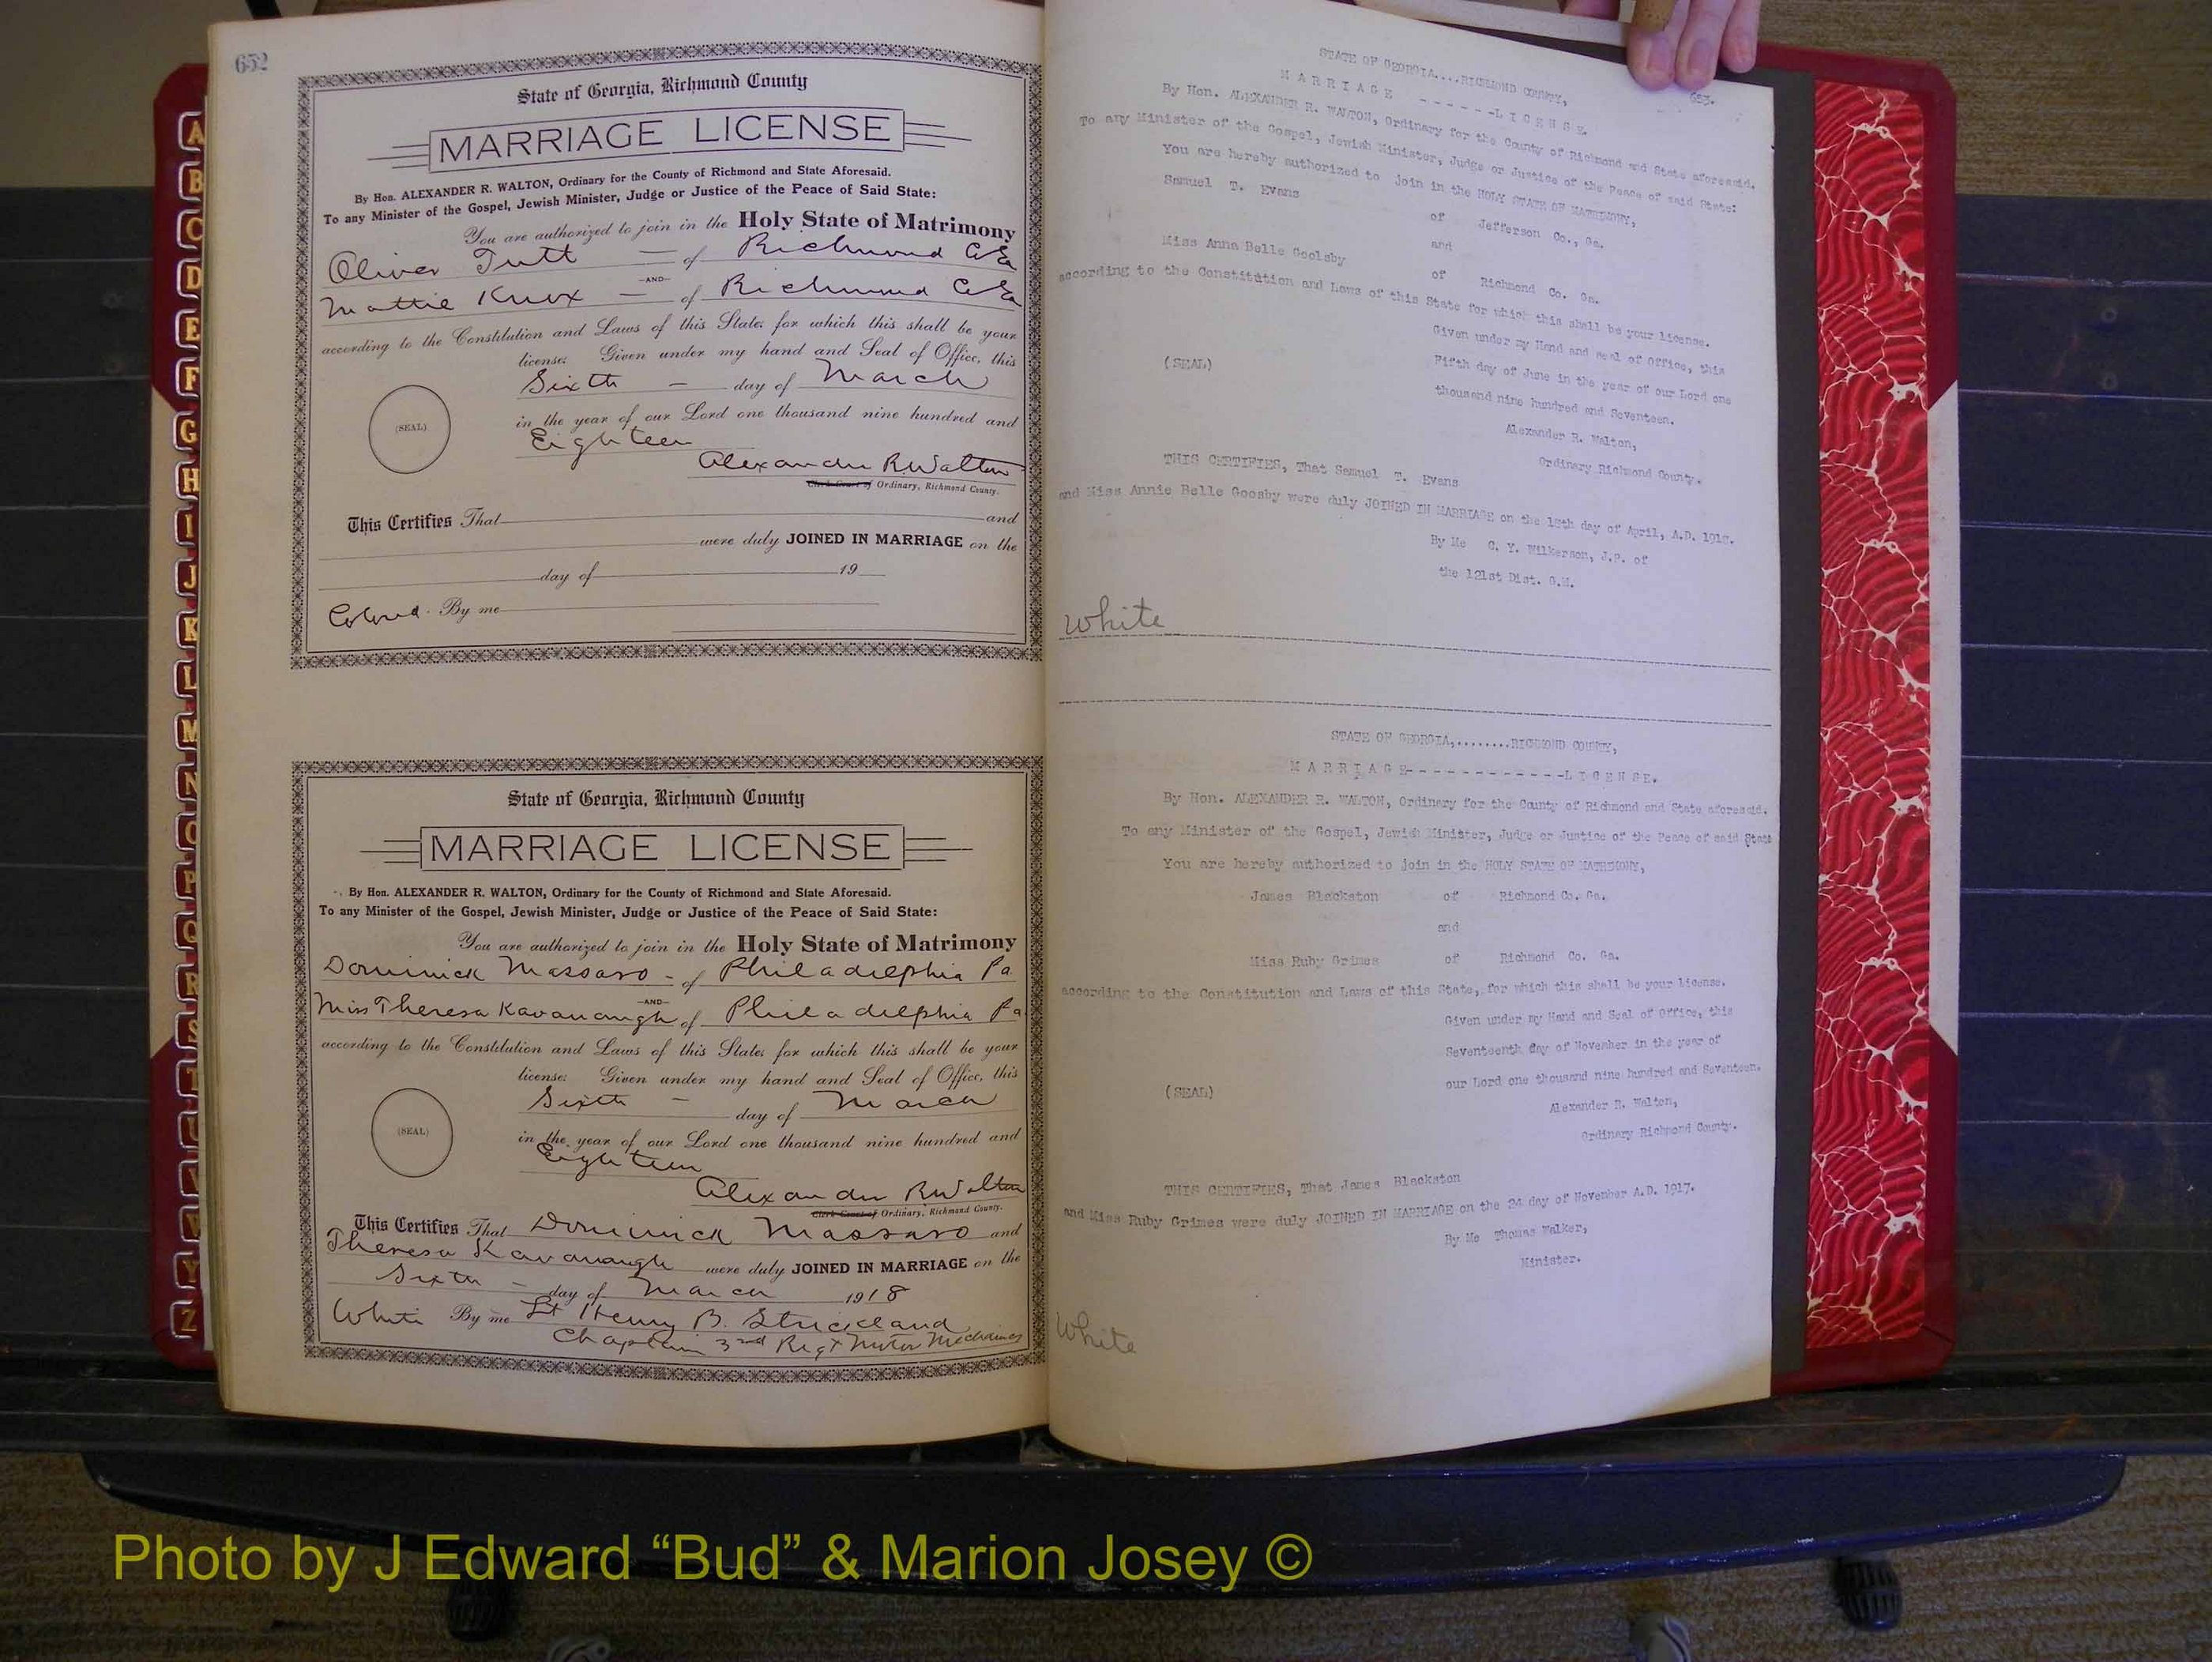 652
State of Georgia, Richmond County
MARRIAGE LICENSE
By Hon. ALEXANDER R. WALTON, Ordinary for the County of Richmond and State Aforesaid.
To any Minister of the Gospel, Jewish Minister, Judge or Justice of the Peace of Said State:
You are authorized to join in the Holy State of Matrimony
Oliver Tutt — of Richmond Co Ga
—AND—
Mattie Knox — of Richmond Co Ga
according to the Constitution and Laws of this State, for which this shall be your
license. Given under my hand and Seal of Office, this
Sixth — day of March
in the year of our Lord one thousand nine hundred and
(SEAL)
Eighteen
Alexander R Walton
Clerk Court of Ordinary, Richmond County.
This Certifies That and
were duly JOINED IN MARRIAGE on the
day of 19
Colored. By me
State of Georgia, Richmond County
MARRIAGE LICENSE
By Hon. ALEXANDER R. WALTON, Ordinary for the County of Richmond and State Aforesaid.
To any Minister of the Gospel, Jewish Minister, Judge or Justice of the Peace of Said State:
You are authorized to join in the Holy State of Matrimony
Dominick Massaro - of Philadelphia Pa
—AND—
Miss Theresa Kavanaugh of Philadelphia Pa
according to the Constitution and Laws of this State, for which this shall be your
license. Given under my hand and Seal of Office, this
Sixth — day of March
(SEAL)
in the year of our Lord one thousand nine hundred and
Eighteen
Alexander R Walton
Clerk Court of Ordinary, Richmond County.
This Certifies That Dominick Massaro and
Theresa Kavanaugh were duly JOINED IN MARRIAGE on the
Sixth — day of March 1918
White By me Lt Henry B. Strickland
Chaplain 3rd Regt Motor Mechanics
653.
STATE OF GEORGIA....RICHMOND COUNTY,
M A R R I A G E - - - - - -L I C E N S E.
By Hon. ALEXANDER R. WALTON, Ordinary for the County of Richmond and State aforesaid.
To any Minister of the Gospel, Jewish Minister, Judge or Justice of the Peace of said State:
You are hereby authorized to join in the HOLY STATE OF MATRIMONY,
Samuel T. Evans of Jefferson Co., Ga.
and
Miss Anna Belle Goolsby of Richmond Co. Ga.
according to the Constitution and Laws of this State for which this shall be your license.
Given under my Hand and seal of Office, this
(SEAL) Fifth day of June in the year of our Lord one
thousand nine hundred and Seventeen.
Alexander R. Walton,
Ordinary Richmond County.
THIS CERTIFIES, That Samuel T. Evans
and Miss Annie Belle Goosby were duly JOINED IN MARRIAGE on the day of April, A.D. 1917.
By Me C. Y. Wilkerson, J.P. of
the 121st Dist. G.M.
White
STATE OF GEORGIA,........RICHMOND COUNTY,
M A R R I A G E- - - - - - - - - - - - -L I C E N S E.
By Hon. ALEXANDER R. WALTON, Ordinary for the County of Richmond and State aforesaid.
To any Minister of the Gospel, Jewish Minister, Judge or Justice of the Peace of said State
You are hereby authorized to join in the HOLY STATE OF MATRIMONY,
James Blackston of Richmond Co. Ga.
and
Miss Ruby Grimes of Richmond Co. Ga.
according to the Constitution and Laws of this State, for which this shall be your license.
Given under my Hand and Seal of Office, this
Seventeenth day of November in the year of
(SEAL) our Lord one thousand nine hundred and Seventeen.
Alexander R. Walton,
Ordinary Richmond County.
THIS CERTIFIES, That James Blackston
and Miss Ruby Grimes were duly JOINED IN MARRIAGE on the 24 day of November A.D. 1917.
By Me Thomas Walker,
Minister.
White
A
B
C
D
E
F
G
H
I
J
K
L
M
N
O
P
Q
R
S
T
U
V
W
Y
Z
Photo by J Edward “Bud” & Marion Josey ©